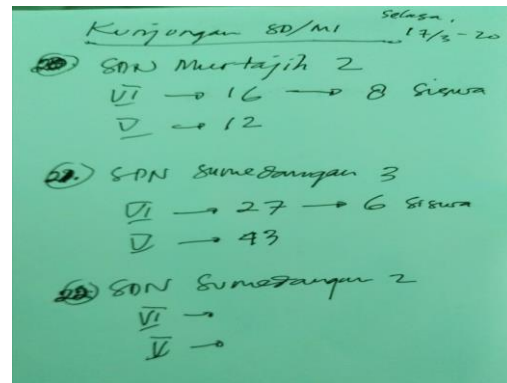 Selasa,
Kunjungan SD/MI 17/3-20
20) SDN Murtajih 2
VI → 16 → 8 siswa
V → 12
21.) SDN Sumedangan 3
VI → 27 → 6 siswa
V → 43
22) SDN Sumedangan 2
VI →
V →